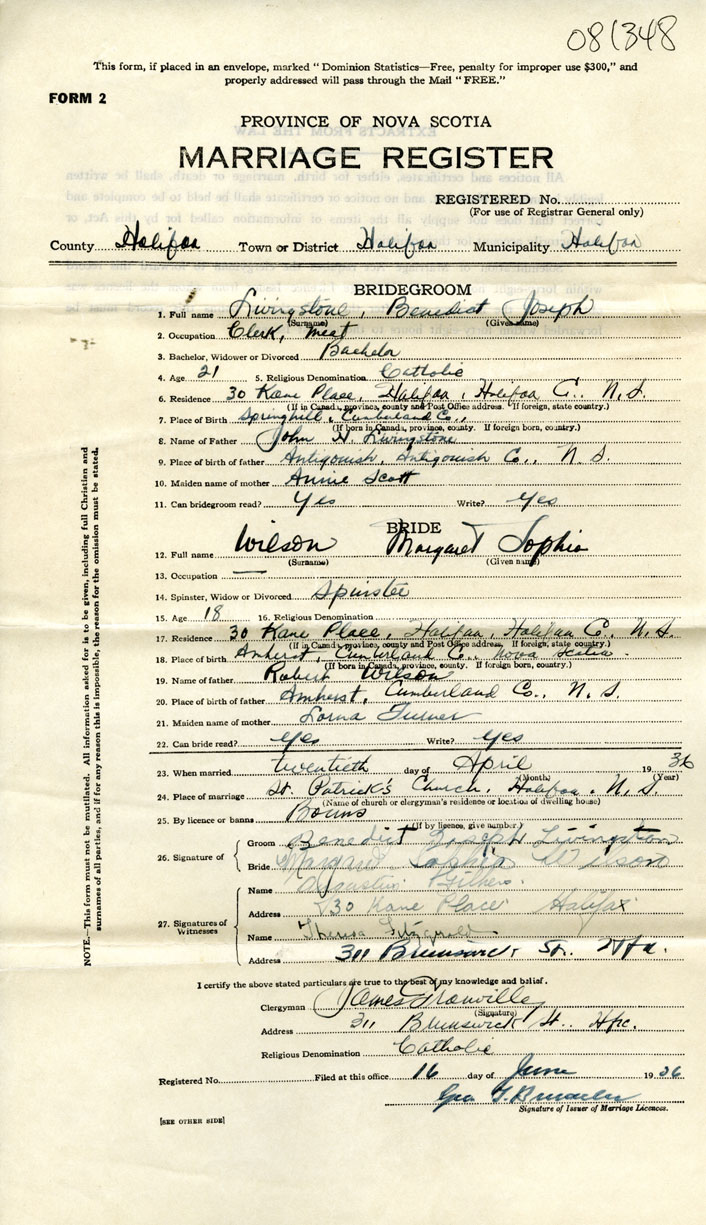 081348
This form, if placed in an envelope, marked " Dominion Statistics—Free, penalty for improper use $300," and
properly addressed will pass through the Mail " FREE."
FORM 2
PROVINCE OF NOVA SCOTIA
MARRIAGE REGISTER
REGISTERED No.
(For use of Registrar General only)
County Halifax Town or District Halifax Municipality Halifax
BRIDEGROOM
1. Full name Livingstone, Benedict Joseph
(Surname) (Given name)
2. Occupation Clerk, meat
3. Bachelor, Widower or Divorced Bachelor
4. Age 21 5. Religious Denomination Catholic
6. Residence 30 Kane Place, Halifax, Halifax C., N.S.
(If in Canada, province, county and Post Office address. If foreign, state country.)
7. Place of Birth Springhill, Cumberland Co.,
(If born in Canada, province, county. If foreign born, country.)
8. Name of Father John H. Livingstone
9. Place of birth of father Antigonish, Antigonish Co., N.S.
10. Maiden name of mother Annie Scott
11. Can bridegroom read? Yes Write? Yes
BRIDE
12. Full name Wilson Margaret Sophia
(Surname) (Given name)
13. Occupation —
14. Spinster, Widow or Divorced Spinster
15. Age 18 16. Religious Denomination
17. Residence 30 Kane Place, Halifax, Halifax C. N.S.
(If in Canada, province, county and Post Office address. If foreign, state country.)
18. Place of birth Amherst, Cumberland C., Nova Scotia.
(If born in Canada, province, county. If foreign born, country.)
19. Name of father Robert Wilson
20. Place of birth of father Amherst, Cumberland Co., N.S.
21. Maiden name of mother Lorna Turner
22. Can bride read? Yes Write? Yes
23. When married twentieth day of April 1936
(Month) (Year)
24. Place of marriage St. Patrick's Church, Halifax, N.S.
(Name of church or clergyman's residence or location of dwelling house)
25. By licence or banns Banns
(If by licence, give number)
26. Signature of
Groom Benedict Joseph Livingston
Bride Margaret Sophia Wilson
27. Signatures of Witnesses
Name Augustus
Address 30 Kane Place Halifax
Name Theresa Fitzgerald
Address 311 Brunswick St. Hfx.
I certify the above stated particulars are true to the best of my knowledge and belief.
Clergyman James Granville
(Signature)
Address 311 Brunswick St. Hfx.
Religious Denomination Catholic
Registered No. Filed at this office 16 day of June 1936
Geo
Signature of Issuer of Marriage Licences.
[SEE OTHER SIDE]
NOTE.—This form must not be mutilated. All information asked for is to be given, including full Christian and
surnames of all parties, and if for any reason this is impossible, the reason for the omission must be stated.